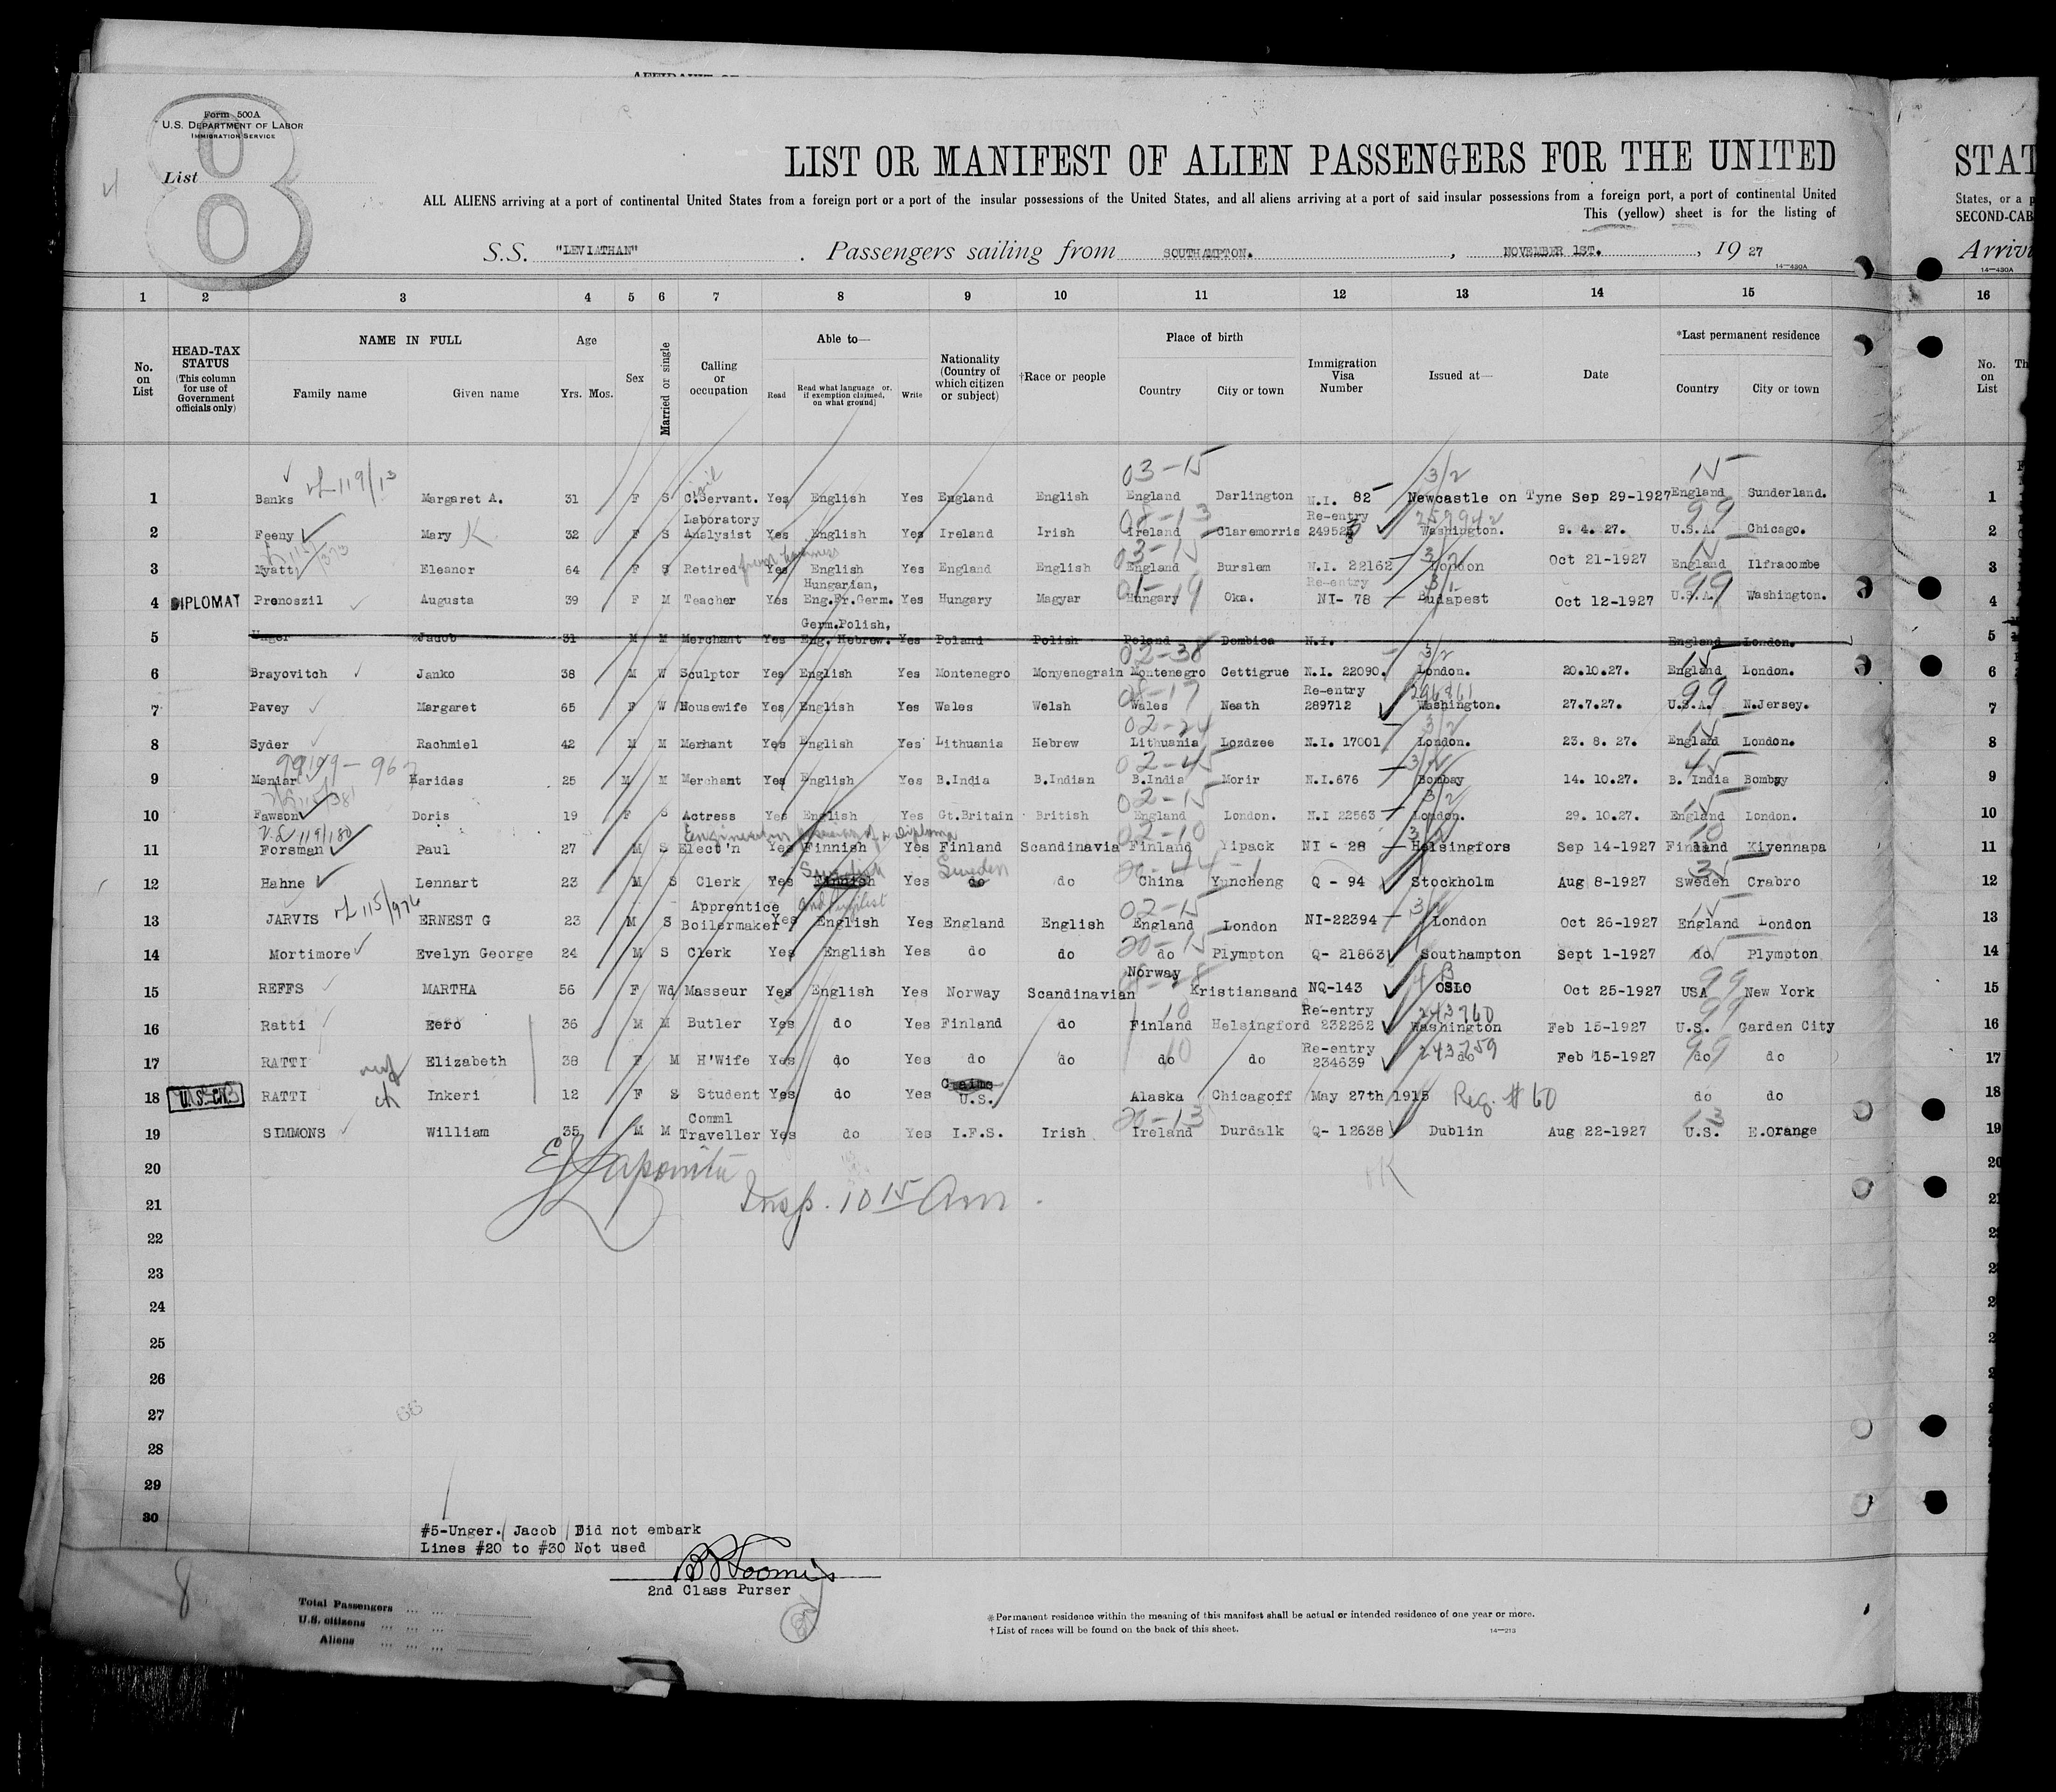 Form 500A
U.S. DEPARTMENT OF LABOR
IMMIGRATION SERVICE
List 8
LIST OR MANIFEST OF ALIEN PASSENGERS FOR THE UNITED STAT
ALL ALIENS arriving at a port of continental United States from a foreign port or a port of the insular possessions of the United States, and all aliens arriving at a port of said insular possessions from a foreign port, a port of continental United
States, or a p
This (yellow) sheet is for the listing of
SECOND-CAB
S.S. "LEVIATHAN" . Passengers sailing from SOUTHAMPTON. , NOVEMBER 1ST. , 19 27
14—430A
1 2 3 4 5 6 7 8 9 10 11 12 13 14 15 16
No. on List
HEAD-TAX STATUS (This column for use of Government officials only)
NAME IN FULL
Family name Given name
Age
Yrs. Mos.
Sex
Married or single
Calling or occupation
Able to—
Read Read what language or, if exemption claimed, on what ground Write
Nationality (Country of which citizen or subject)
†Race or people
Place of birth
Country City or town
Immigration Visa Number
Issued at—
Date
*Last permanent residence
Country City or town
No. on List
03-15 3/2 15
1 Banks 119/13 Margaret A. 31 F S C.Servant. Yes English Yes England English England Darlington N.I. 82 Newcastle on Tyne Sep 29-1927 England Sunderland. 1
2 Feeny Mary K 32 F S Laboratory Analysist Yes English Yes Ireland Irish Ireland Claremorris Re-entry 249523 Washington. 9. 4. 27. U.S.A. Chicago. 2
3 Myatt Eleanor 64 F S Retired Yes English Yes England English England Burslem N.I. 22162 London Oct 21-1927 England Ilfracombe 3
4 DIPLOMAT Prenoszil Augusta 39 F M Teacher Yes Hungarian, Eng.Fr.Germ. Yes Hungary Magyar Hungary Oka. Re-entry NI- 78 Budapest Oct 12-1927 U.S.A. Washington. 4
5 Unger Jacob 31 M M Merchant Yes Germ.Polish, Eng. Hebrew. Yes Poland Polish Poland Dembica N.I. England London. 5
6 Brayovitch Janko 38 M W Sculptor Yes English Yes Montenegro Monyenegrain Montenegro Cettigrue N.I. 22090. London. 20.10.27. England London. 6
7 Pavey Margaret 65 F W Housewife Yes English Yes Wales Welsh Wales Neath Re-entry 289712 Washington. 27.7.27. U.S.A. N.Jersey. 7
8 Syder Rachmiel 42 M M Merhant Yes English Yes Lithuania Hebrew Lithuania Lozdzee N.I. 17001 London. 23. 8. 27. England London. 8
9 Maniar Haridas 25 M M Merchant Yes English Yes B.India B.Indian B.India Morir N.I.676 Bombay 14. 10.27. B. India Bombay 9
10 Fawson Doris 19 F S Actress Yes English Yes Gt.Britain British England London. N.I 22563 London. 29. 10.27. England London. 10
11 Forsman Paul 27 M S Elect'n Yes Finnish Yes Finland Scandinavia Finland Yipack NI - 28 Helsingfors Sep 14-1927 Finland Kiyennapa 11
12 Hahne Lennart 23 M S Clerk Yes Swedish Finnish Yes Sweden do do China Yuncheng Q - 94 Stockholm Aug 8-1927 Sweden Crabro 12
13 JARVIS 115/976 ERNEST G 23 M S Apprentice Boilermaker Yes English Yes England English England London NI-22394 London Oct 26-1927 England London 13
14 Mortimore Evelyn George 24 M S Clerk Yes English Yes do do do Plympton Q- 21863 Southampton Sept 1-1927 do Plympton 14
15 REFFS MARTHA 56 F Wd Masseur Yes English Yes Norway Scandinavian Norway Kristiansand NQ-143 OSLO Oct 25-1927 USA New York 15
16 Ratti Eero 36 M M Butler Yes do Yes Finland do Finland Helsingford Re-entry 232262 243760 Washington Feb 15-1927 U.S. Garden City 16
17 RATTI Elizabeth 38 F M H'Wife Yes do Yes do do do do Re-entry 234639 243759 do Feb 15-1927 do do 17
18 U.S. CIT. RATTI Inkeri 12 F S Student Yes do Yes U.S. Alaska Chicagoff May 27th 1915 Reg. # 60 do do 18
19 SIMMONS William 35 M M Comml Traveller Yes do Yes I.F.S. Irish Ireland Durdalk Q- 12638 Dublin Aug 22-1927 U.S. E.Orange 19
20
Insp. 10 15 Am
21
22
23
24
25
26
27
28
29
30
#5-Unger. Jacob Did not embark
Lines #20 to #30 Not used
2nd Class Purser
8
Total Passengers
U.S. citizens
Aliens
*Permanent residence within the meaning of this manifest shall be actual or intended residence of one year or more.
†List of races will be found on the back of this sheet.
14—213